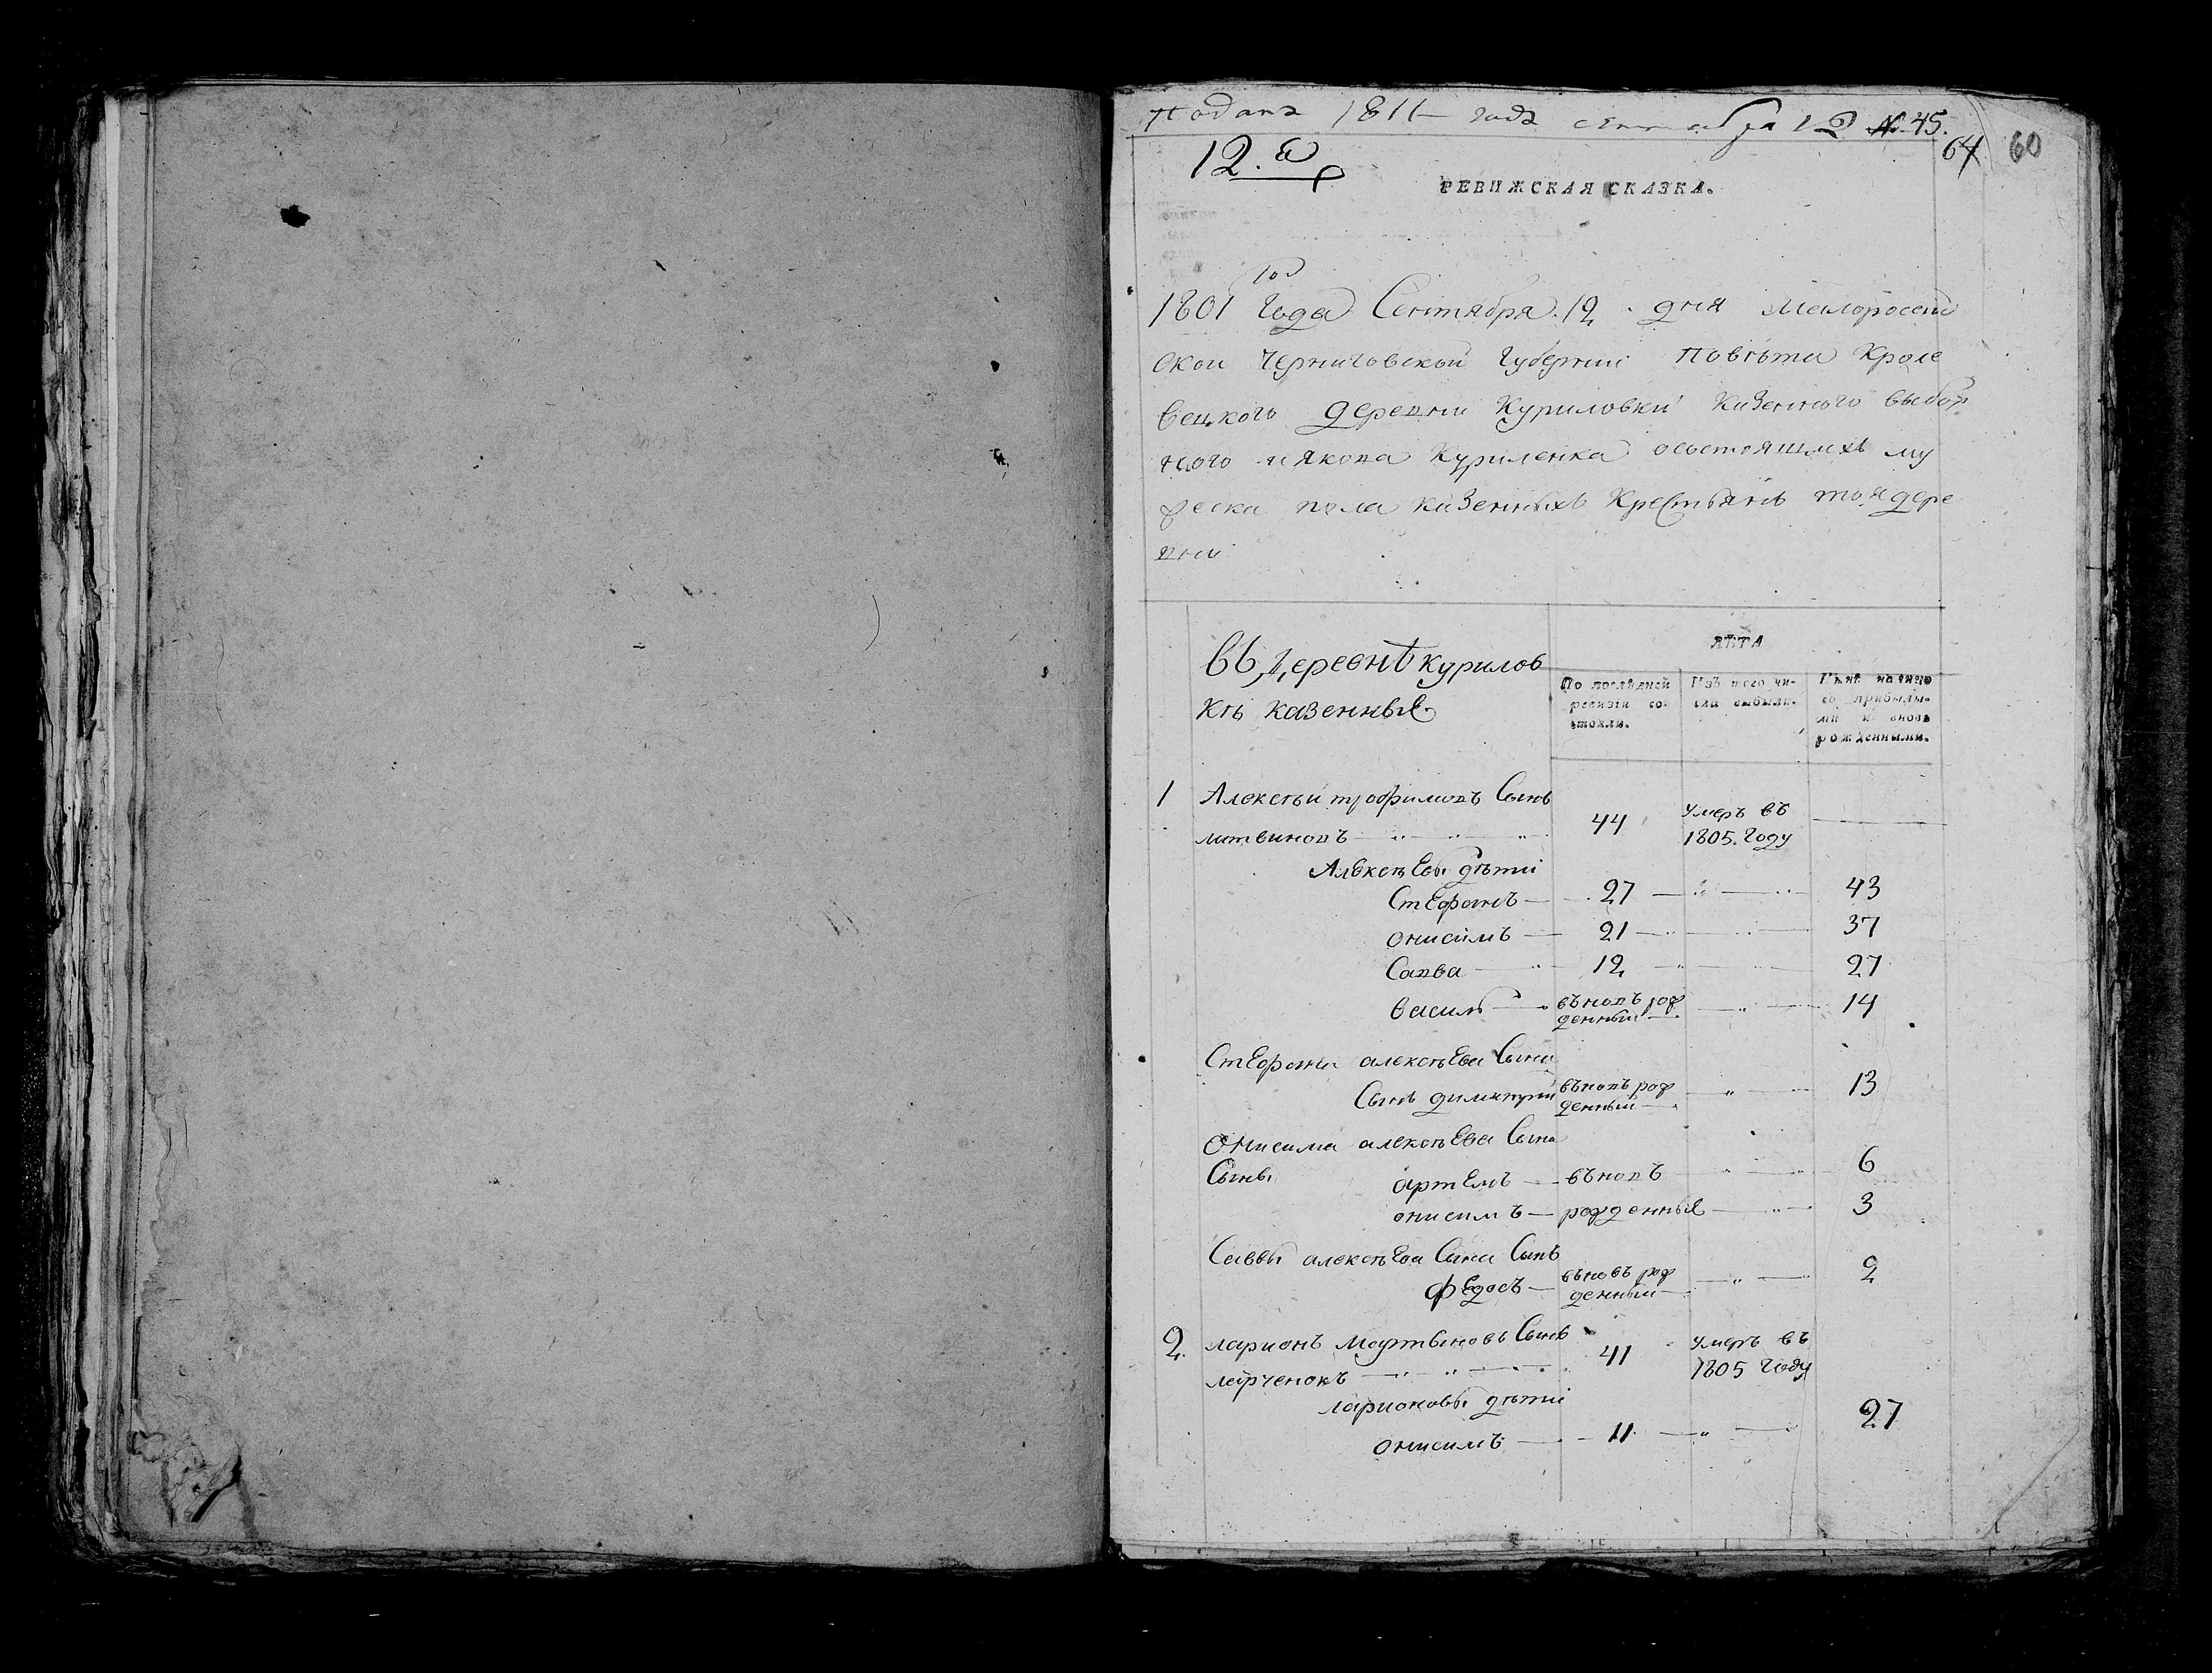 Подана 1811 года сентября 12 № 45.
12.
64 60
РЕВИЖСКАЯ СКАЗКА.
1801 Года Сентября 12 дня Малоросеій
ской Черниговской Губерніи Повѣта Кроле
вецкого Деревни Куриловки Казенного выбор
ного Якова Куриленка осостоящихъ му
жеска пола казенныхъ Крестьянъ тоя дере
вни
въ деревнѣ курилов
кѣ казенные
ЛѢТА
По послѣдней ревизіи состояли.
Изъ того числа выбыли.
Нынѣ на лицо съ прибылыми и вновь рожденными.
1 Алексѣй трофимовъ Сынъ
литвиновъ 44 Умеръ въ 1805. Году
Алексѣевы дѣти
Стефанъ 27 43
онисимъ 21 37
Савва 12 27
василь вновъ рожденный 14
Стефана алексѣева Сына
Сынъ димитрій вновъ рожденный 13
Онисима алексѣева Сына
Сыны артемъ вновъ 6
онисимъ рожденные 3
Саввы алексѣева Сына Сынъ
Федосъ вновъ рожденный 2
2. ларионъ Мартыновъ Сынъ
ларченокъ 41 Умеръ въ 1805 Году
ларионовы дѣти
онисимъ 11 27